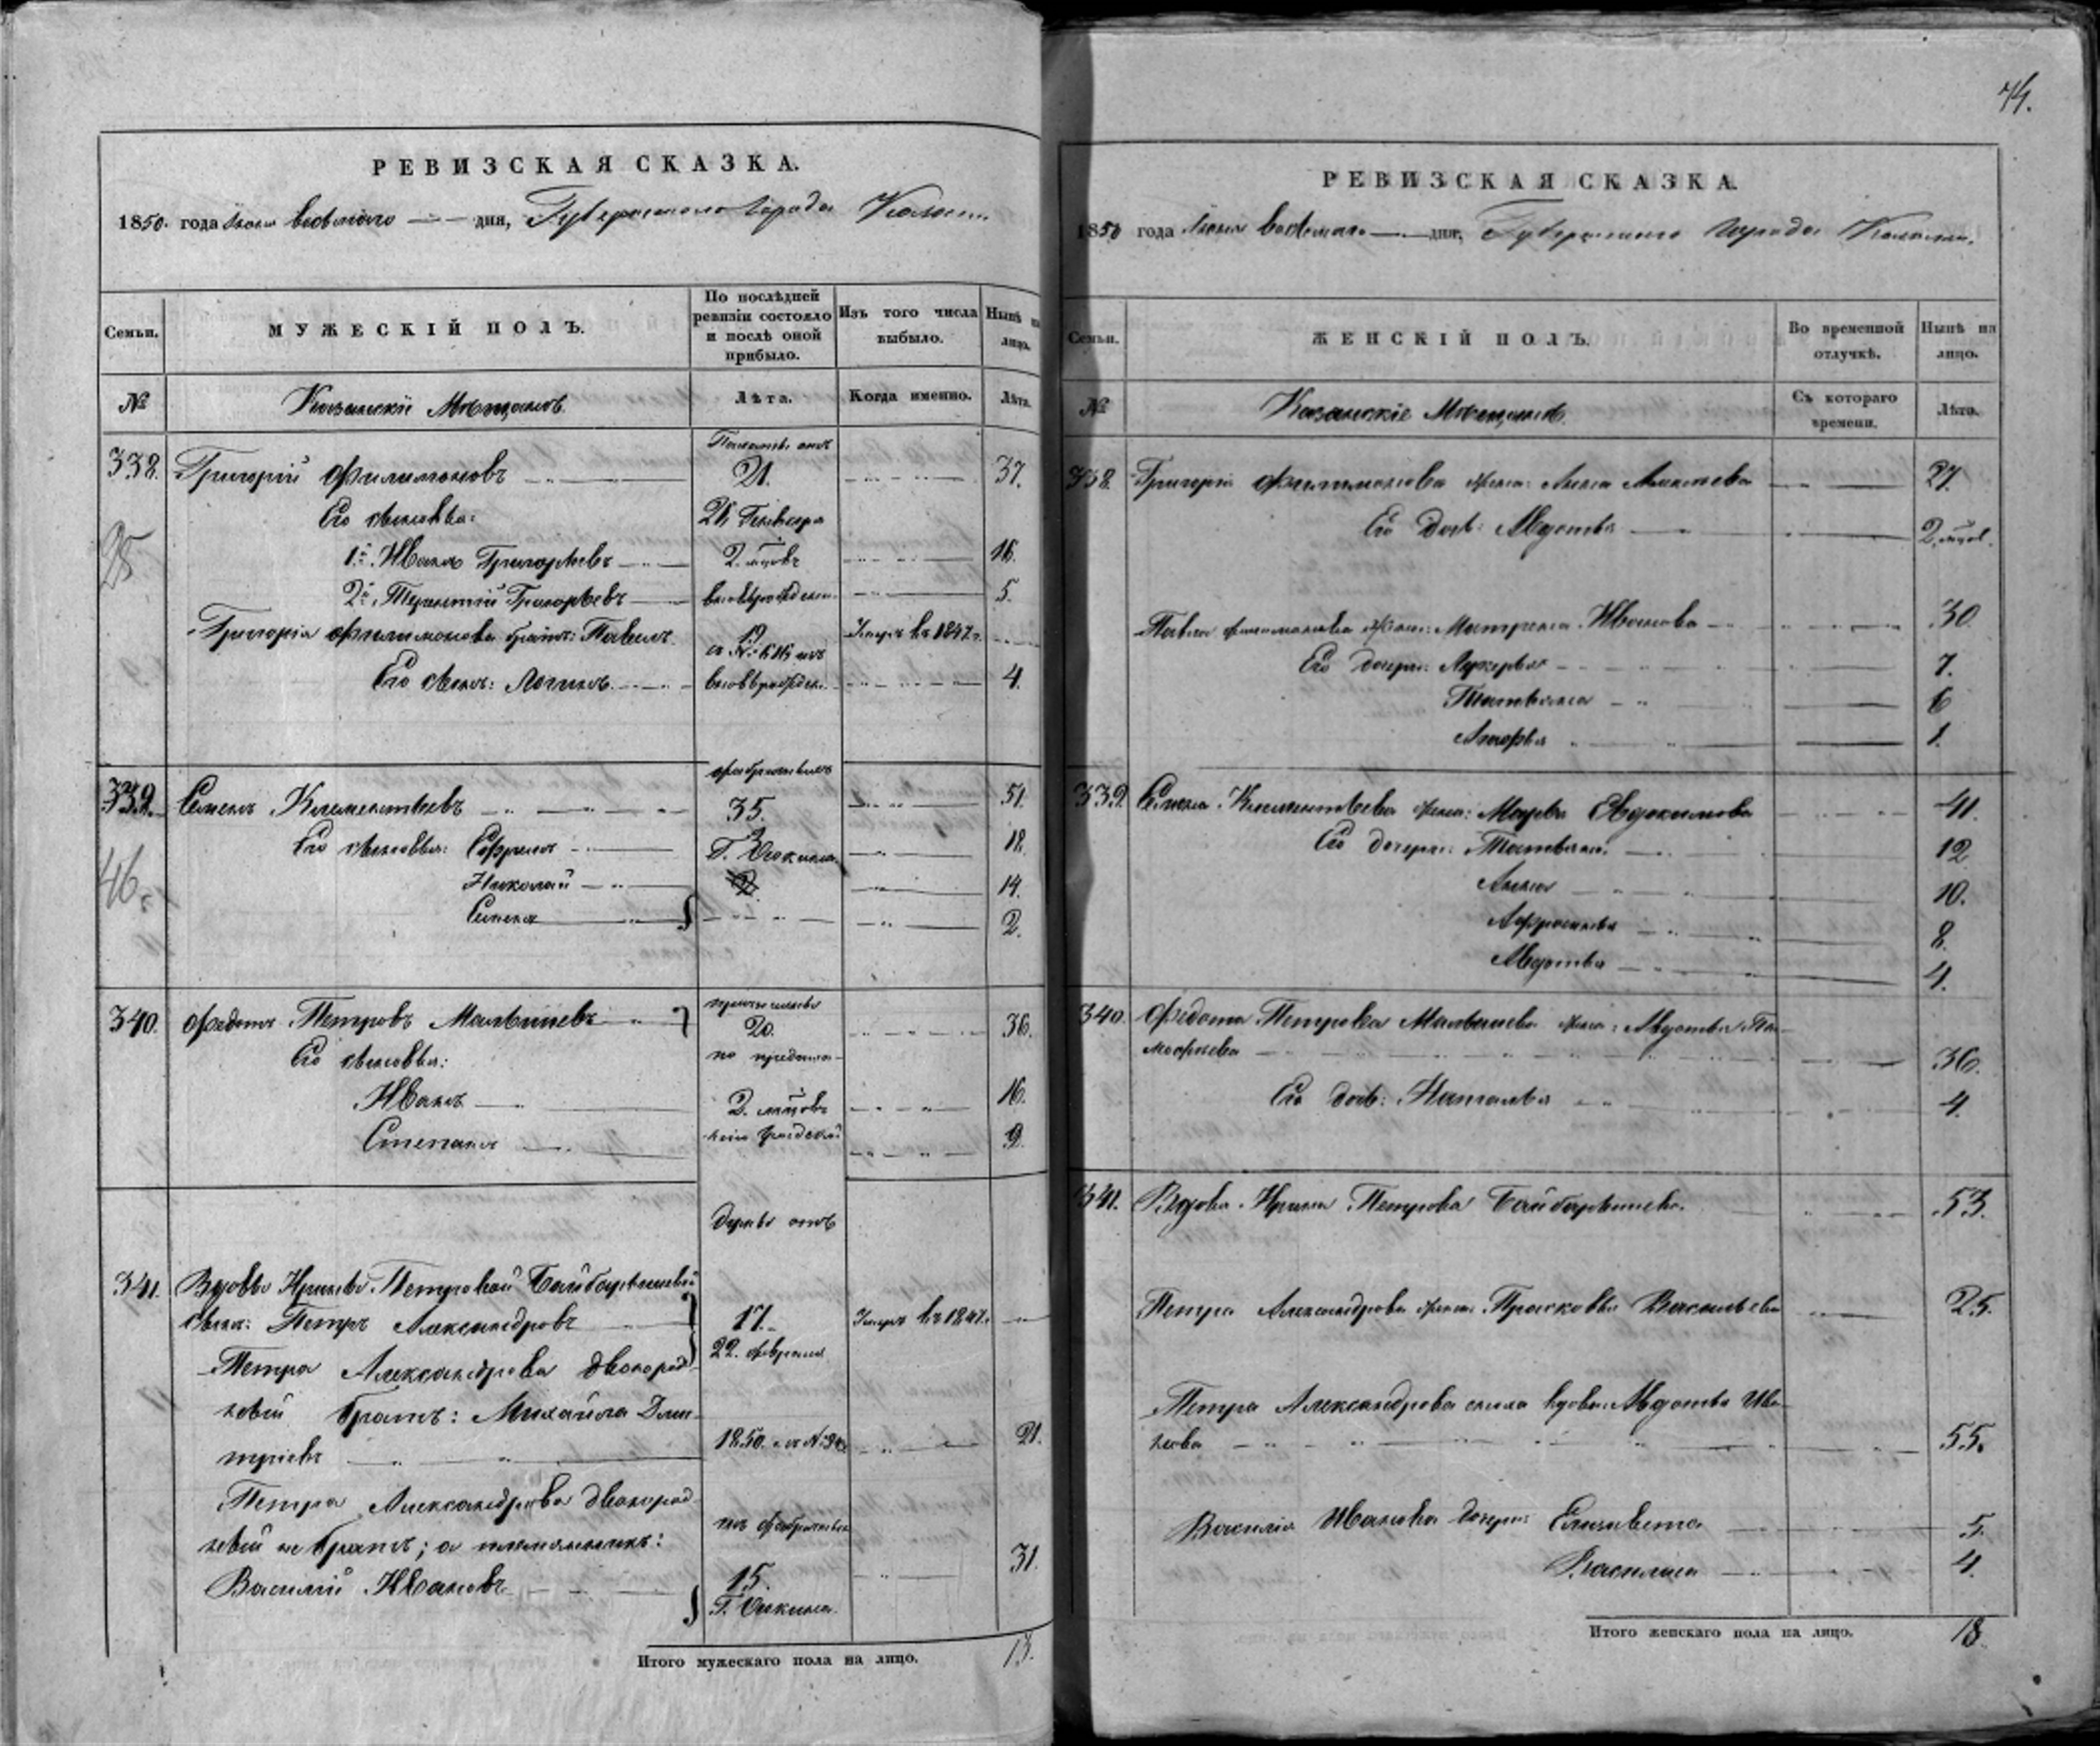 РЕВИЗСКАЯ СКАЗКА.
1850. года Июня восьмаго дня, Губернскаго города Казани.
Семьи.
МУЖЕСКІЙ ПОЛЪ.
По послѣдней ревизіи состояло и послѣ оной прибыло.
Изъ того числа выбыло.
Нынѣ на лицо.
№
Казанскіе Мѣщане.
Лѣта.
Когда именно.
Лѣта.
338. Григорій Филимоновъ 21. 37.
Его сыновья:
25
1й Иванъ Григорьевъ 2. мцовъ 16.
2й Терентій Григорьевъ 5.
Григорія Филимонова братъ: Павелъ 19 Умеръ въ 1847 г.
Его сынъ: Логинъ 4.
339. Семенъ Климентьевъ 35. 51.
Его сыновья: Ефремъ 3 18.
46
Николай 14.
Семенъ 2.
340. Федотъ Петровъ 20. 36.
Его сыновья:
Иванъ 2. мцовъ 16.
Степанъ 9.
341. Вдовы Ирины Петровой
сынъ: Петръ Александровъ 17. Умеръ въ 1847.
Петра Александрова двоюрод- 22. февраля
ный братъ: Михайла Дми-
тріевъ 1850. 21.
Петра Александрова двоюрод-
ный не братъ; а племянникъ:
Василій Ивановъ 15. 31.
Итого мужескаго пола на лицо. 13.
74.
РЕВИЗСКАЯ СКАЗКА.
1850 года Июня восьмаго дня, Губернскаго города Казани.
Семьи.
ЖЕНСКІЙ ПОЛЪ.
Во временной отлучкѣ.
Нынѣ на лицо.
№
Казанскіе Мѣщане.
Съ котораго времени.
Лѣта.
338. Григорія Филимонова жена: Анна 27.
Его дочь: Авдотья 2. мцов.
Павла Филимонова жена: Матрена Иванова 30
Его дочери: Лукерья 7.
Татьяна 6
1.
339. Семена Климентьева жена: Марья Евдокимова 41.
Его дочери: Татьяна 12
Анна 10.
Афросинья 8.
Авдотья 4.
340. Федота Петрова жена: Авдотья Ти-
мофѣева 36.
Его дочь: Наталья 4.
341. Вдова Ирина Петрова 53.
Петра Александрова жена Прасковья Васильева 25.
Петра Александрова вдова Авдотья Ива-
нова 55.
Василія Иванова дочери: Елизавета 5.
Василиса 4.
Итого женскаго пола на лицо. 18.